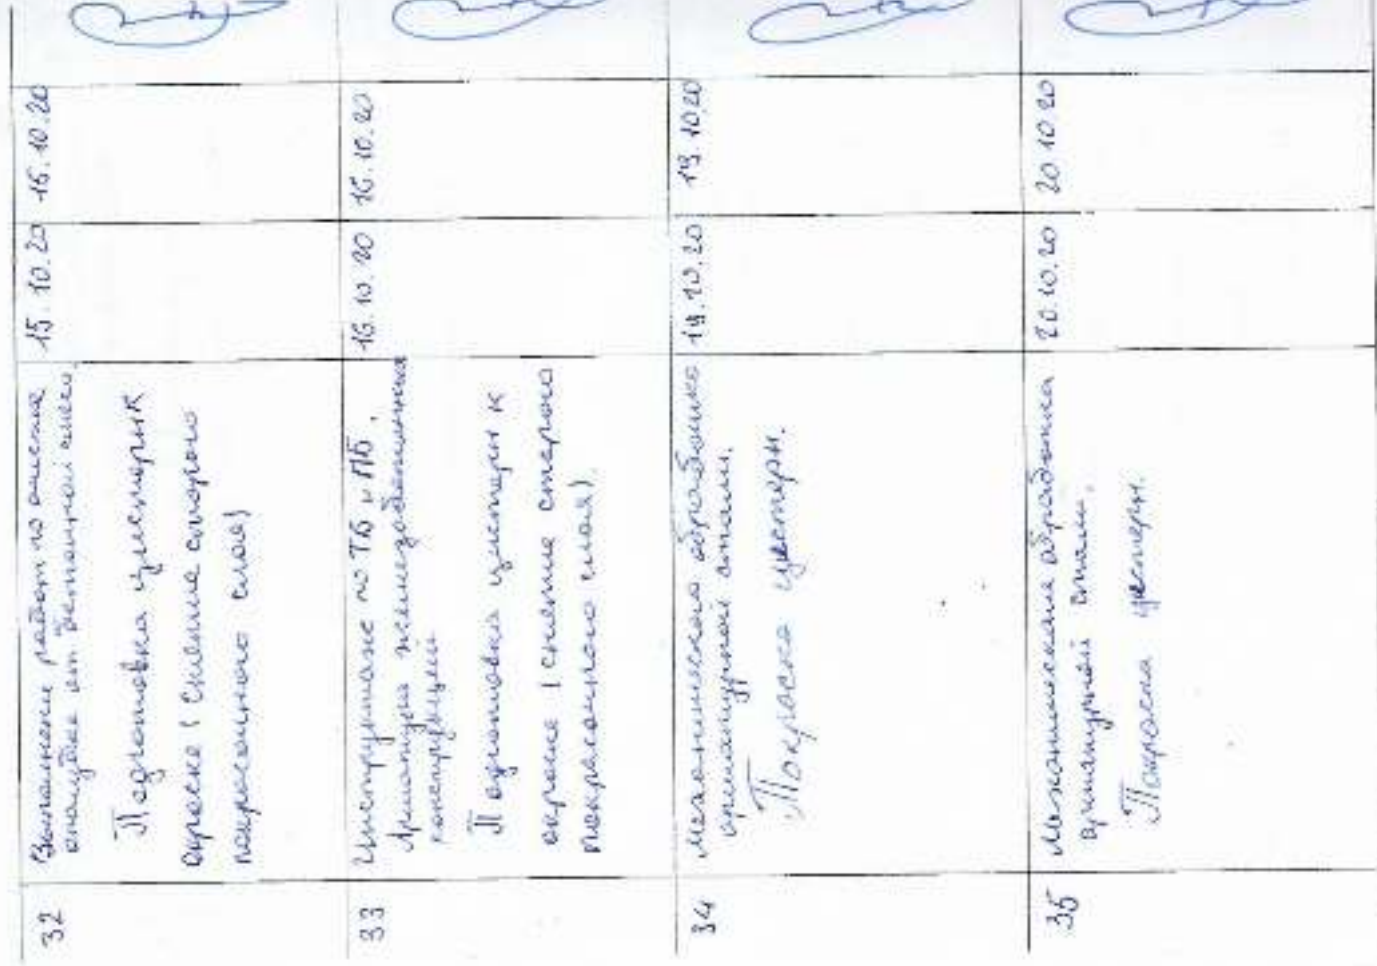 32
Выполнение работ по очистке
опалубки от бетонной смеси.
Подготовка цистерн к
окраске (снятие старого
покрасочного слоя)
15.10.20
16.10.20
33
Инструктаж по ТБ и ПБ.
Арматура железобетонных
конструкций
Подготовка цистерн к
окраске (снятие старого
покрасочного слоя).
16.10.20
16.10.20
34
Механическая обработка
арматурной стали.
Покраска цистерн.
19.10.20
19.10.20
35
Механическая обработка
арматурной стали.
Покраска цистерн.
20.10.20
20.10.20